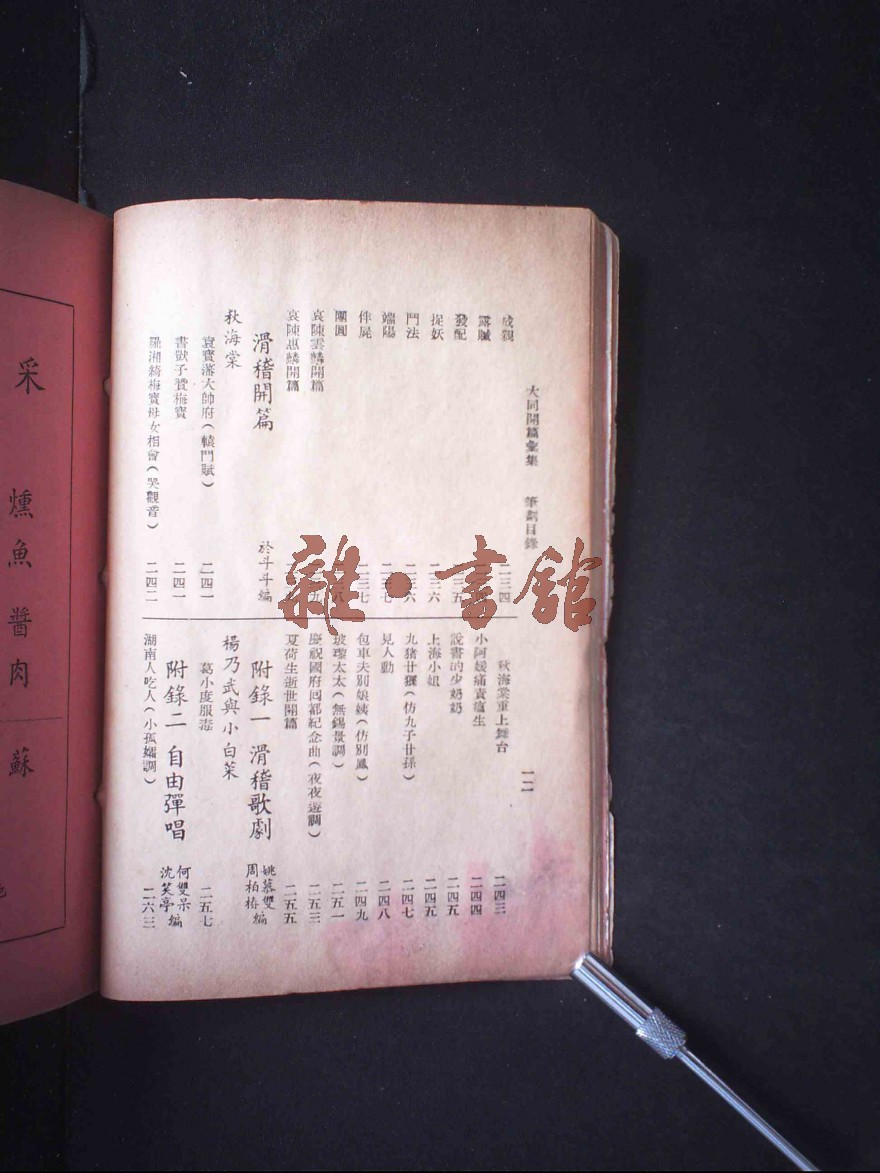 大同開篇彙集 筆劃目錄 一二
成親 二三四
露贓
發配 二三五
捉妖 二三六
鬥法 二三六
端陽 二三七
伴屍 二三七
團圓
哀陳雲麟開篇
哀陳惠麟開篇
滑稽開篇 於斗斗編
秋海棠
袁寶藩大帥府(轅門賦) 二四一
書獃子贊梅寶 二四一
羅湘綺梅寶母女相會(哭觀音) 二四二
秋海棠重上舞台 二四三
小阿媛痛責瘟生 二四四
說書的少奶奶 二四五
上海小姐 二四五
九猪廿玀(仿九子廿孫) 二四七
見人動 二四八
包車夫別娘姨(仿別鳳) 二四九
玻璃太太(無錫景調) 二五一
慶祝國府囘都紀念曲(夜夜遊調) 二五三
夏荷生逝世開篇 二五五
附錄一 滑稽歌劇 姚慕雙 周柏椿編
楊乃武與小白菜
葛小度服毒 二五七
附錄二 自由彈唱 何雙呆 沈笑亭編
湖南人吃人(小孤孀調) 二六三
采
燻魚 醬肉
蘇
雜·書館